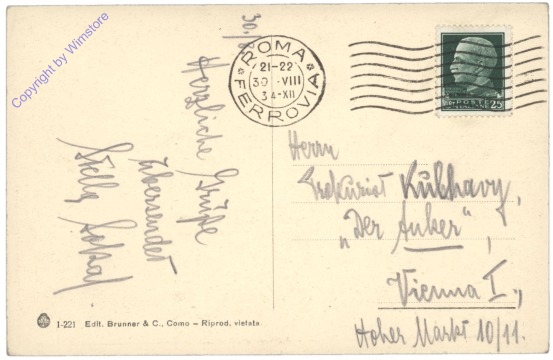 Copyright by Wimstore
30/8
Herzliche Grüße
übersendet
ROMA
FERROVIA
21-22
30 · VIII
34-XII
POSTE
25
Herrn
Prokurist Kulhavy,
„Der Anker",
Vienna I.,
Hoher Markt 10/11.
1-221 Edit. Brunner & C., Como – Riprod. vietata